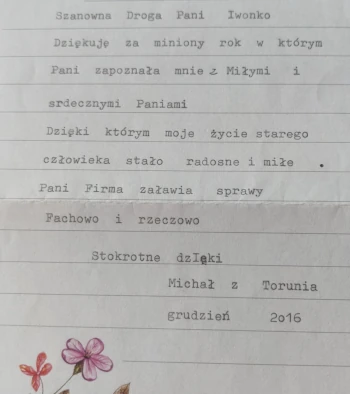 Szanowna Droga Pani Iwonko
Dziękuję za miniony rok w którym
Pani zapoznała mnie z Miłymi i
srdecznymi Paniami
Dzięki którym moje życie starego
człowieka stało radosne i miłe .
Pani Firma załawia sprawy
Fachowo i rzeczowo
Stokrotne dzIęki
Michał z Torunia
grudzień 2o16